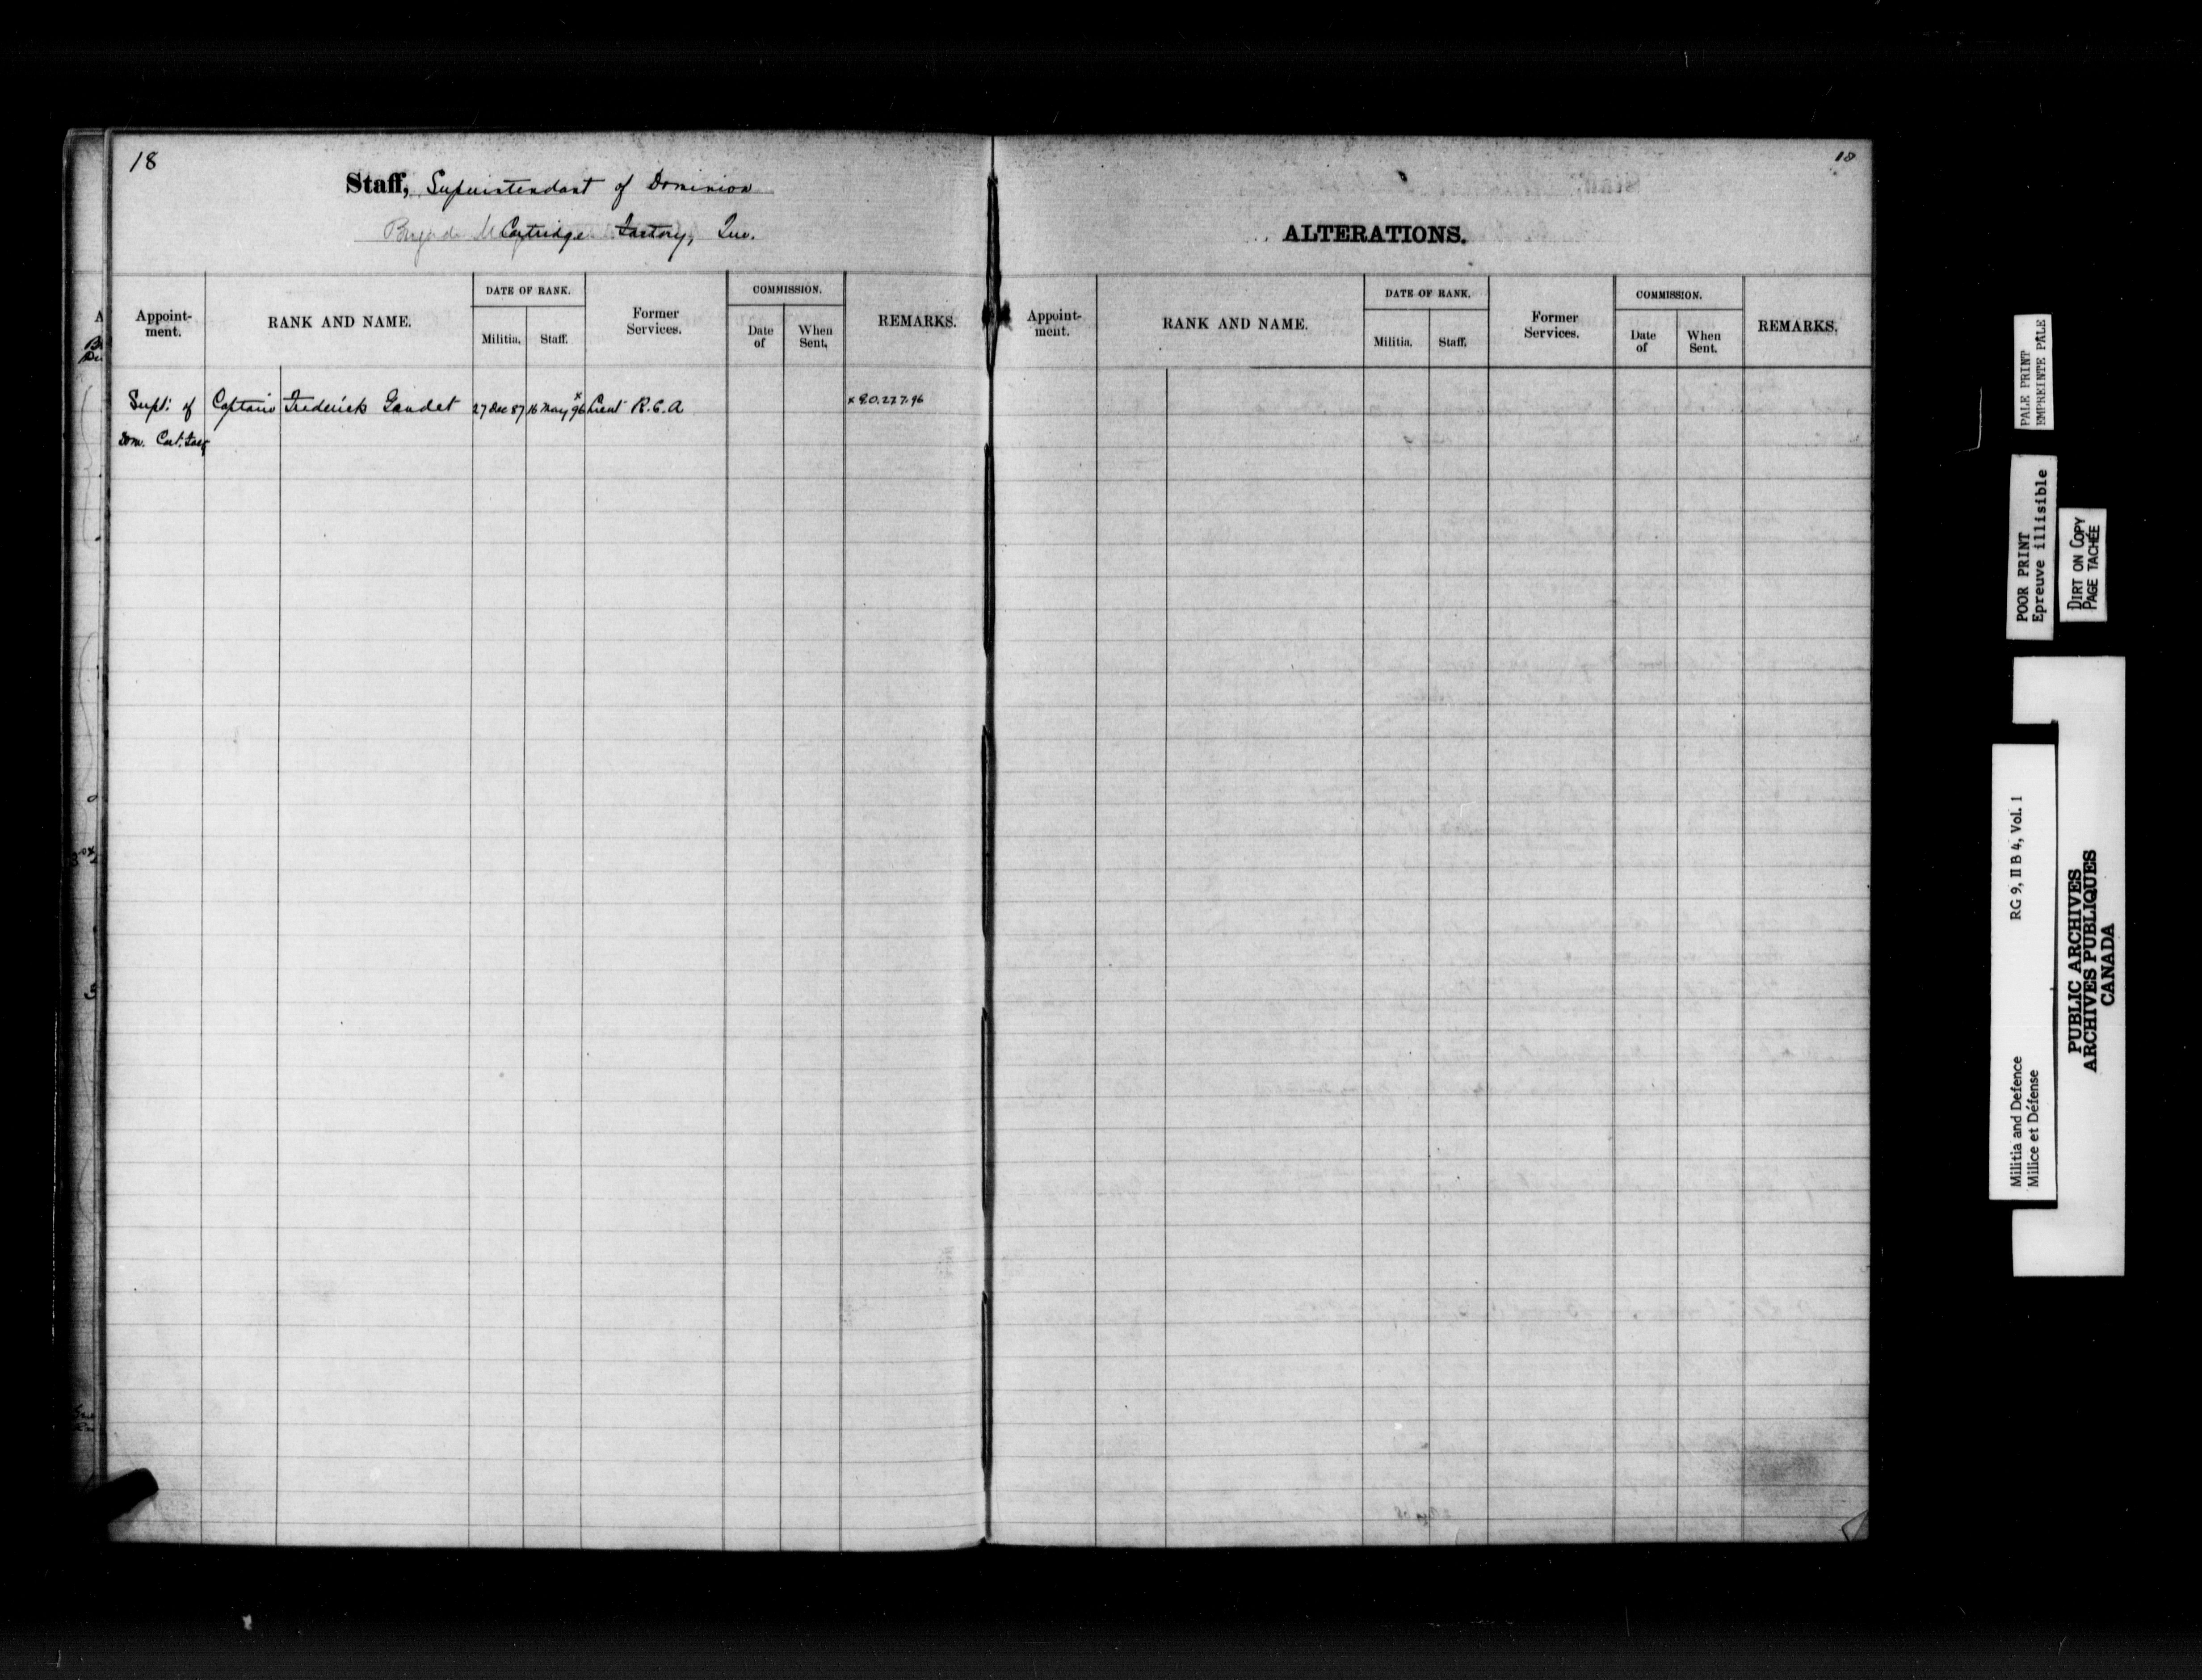 18
Staff, Superintendant of Dominion
Cartridge Factory, Que.
Appoint-
ment.
RANK AND NAME.
DATE OF RANK.
Militia.
Staff.
Former
Services.
COMMISSION.
Date
of
When
Sent.
REMARKS.
Supt: of
Captain
Frederick Gaudet
27 Dec 87
16 May 96
x
Lieut R.C.A
Dom. Cart. Facy
18
ALTERATIONS.
Appoint-
ment.
RANK AND NAME.
DATE OF RANK.
Militia.
Staff.
Former
Services.
COMMISSION.
Date
of
When
Sent.
REMARKS.
PALE PRINT
EMPREINTE PÂLE
POOR PRINT
Epreuve illisible
DIRT ON COPY
PAGE TACHÉE
Militia and Defence
Milice et Défense
RG 9, II B 4, Vol. 1
PUBLIC ARCHIVES
ARCHIVES PUBLIQUES
CANADA